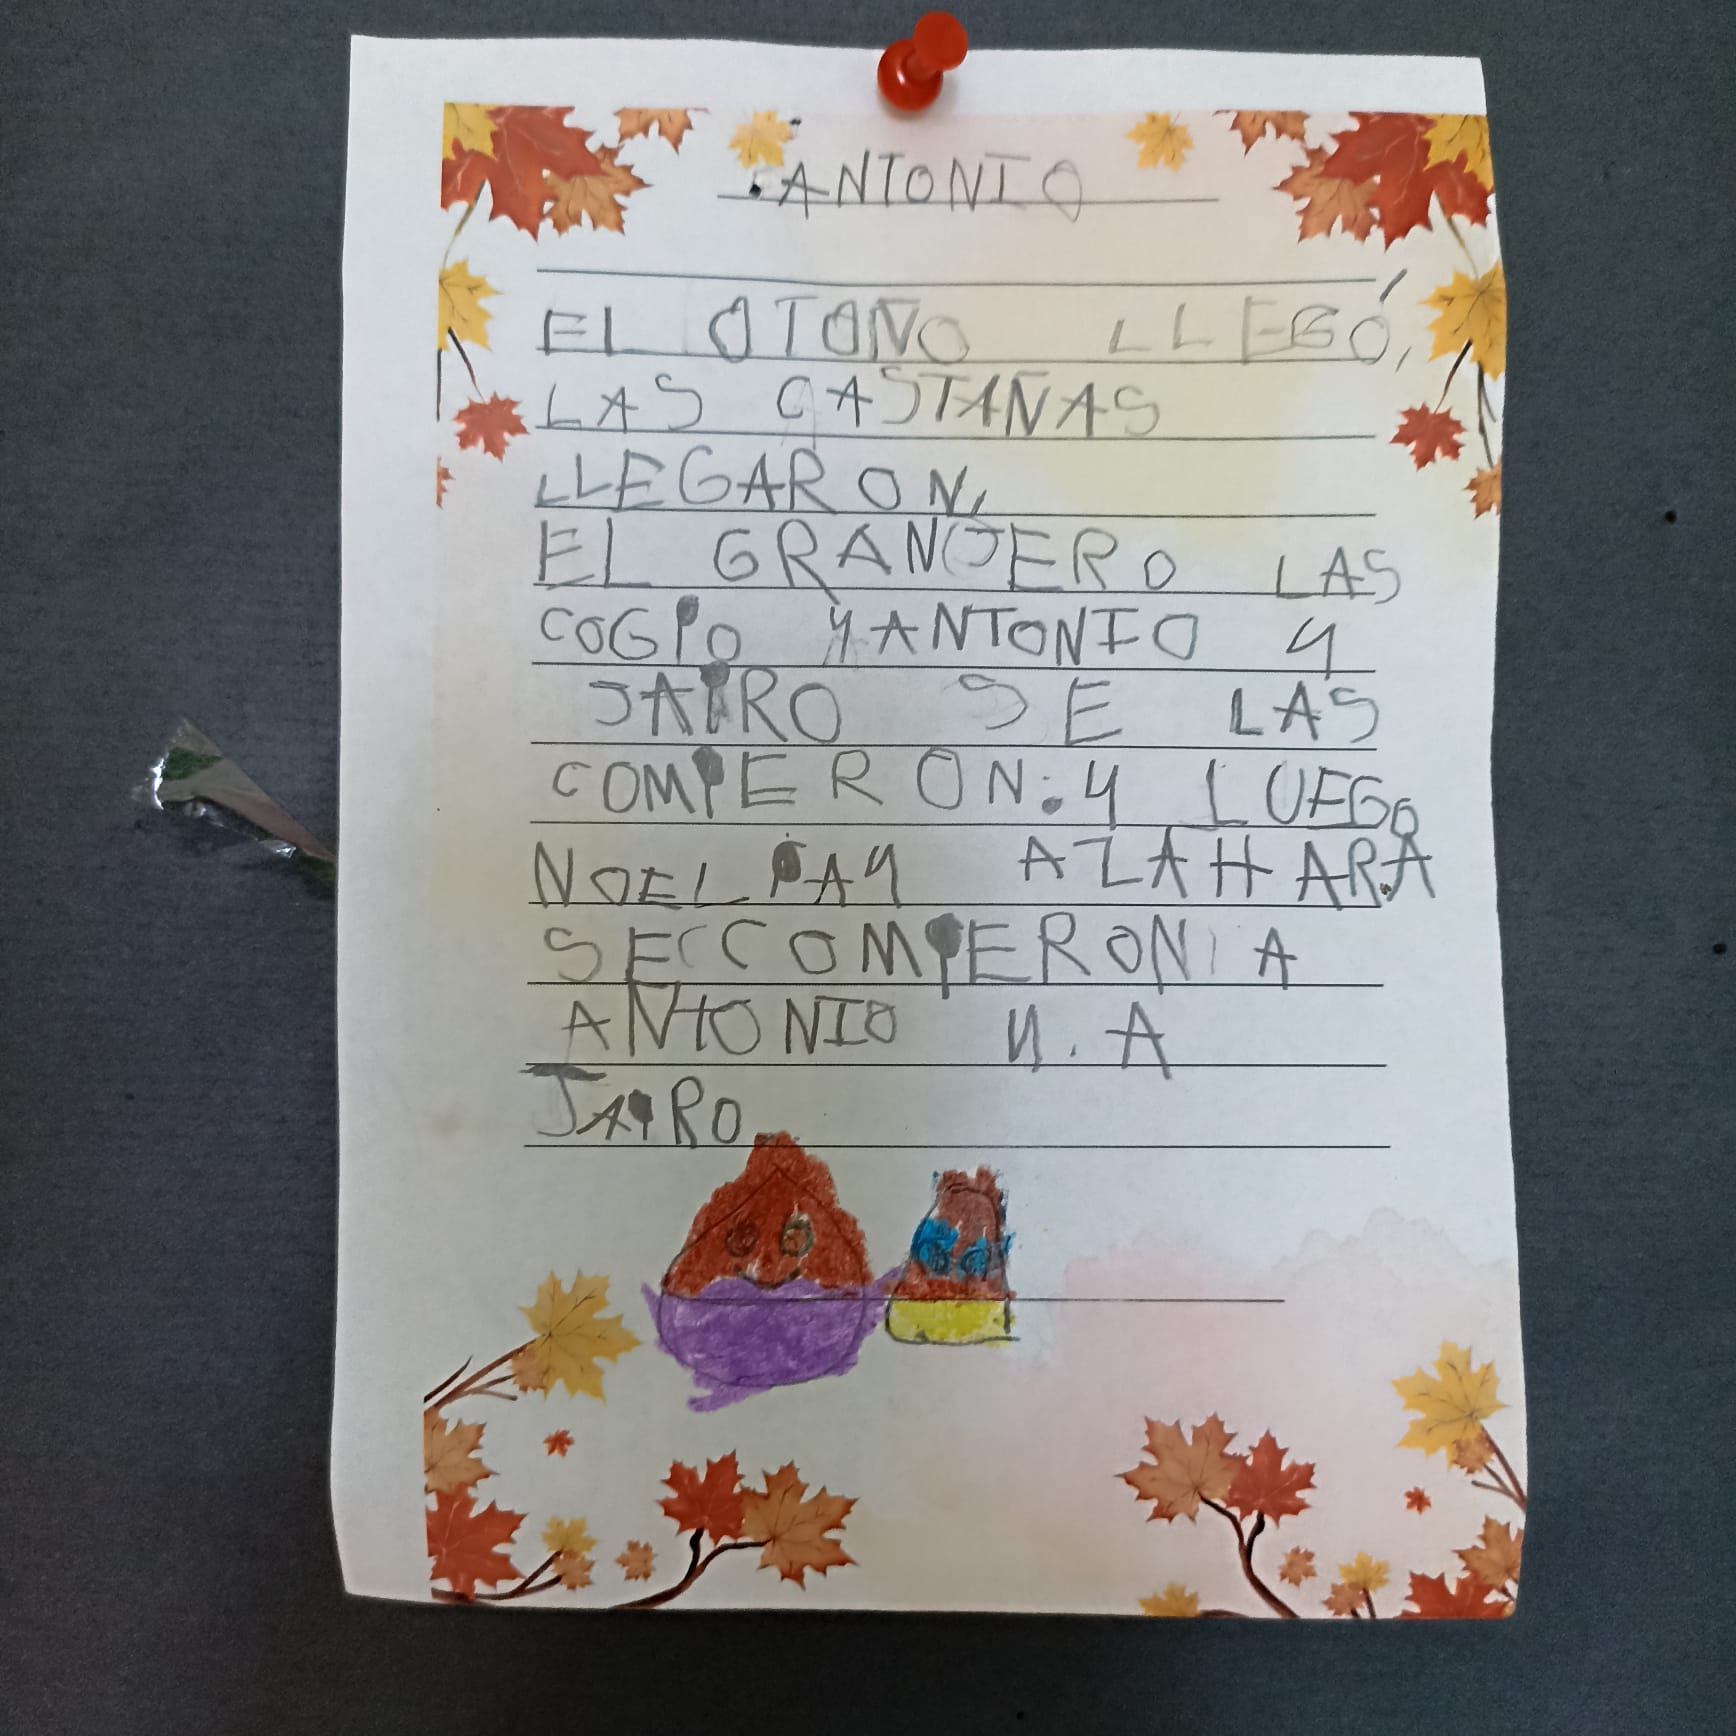 ANTONIO
EL OTOÑO LLEGÓ,
LAS CASTAÑAS
LLEGARON,
EL GRANJERO LAS
COGIO Y ANTONIO Y
JAIRO SE LAS
COMIERON. Y LUEGO
NOELIA Y AZAHARA
SE COMIERON A
ANTONIO Y. A
JAIRO